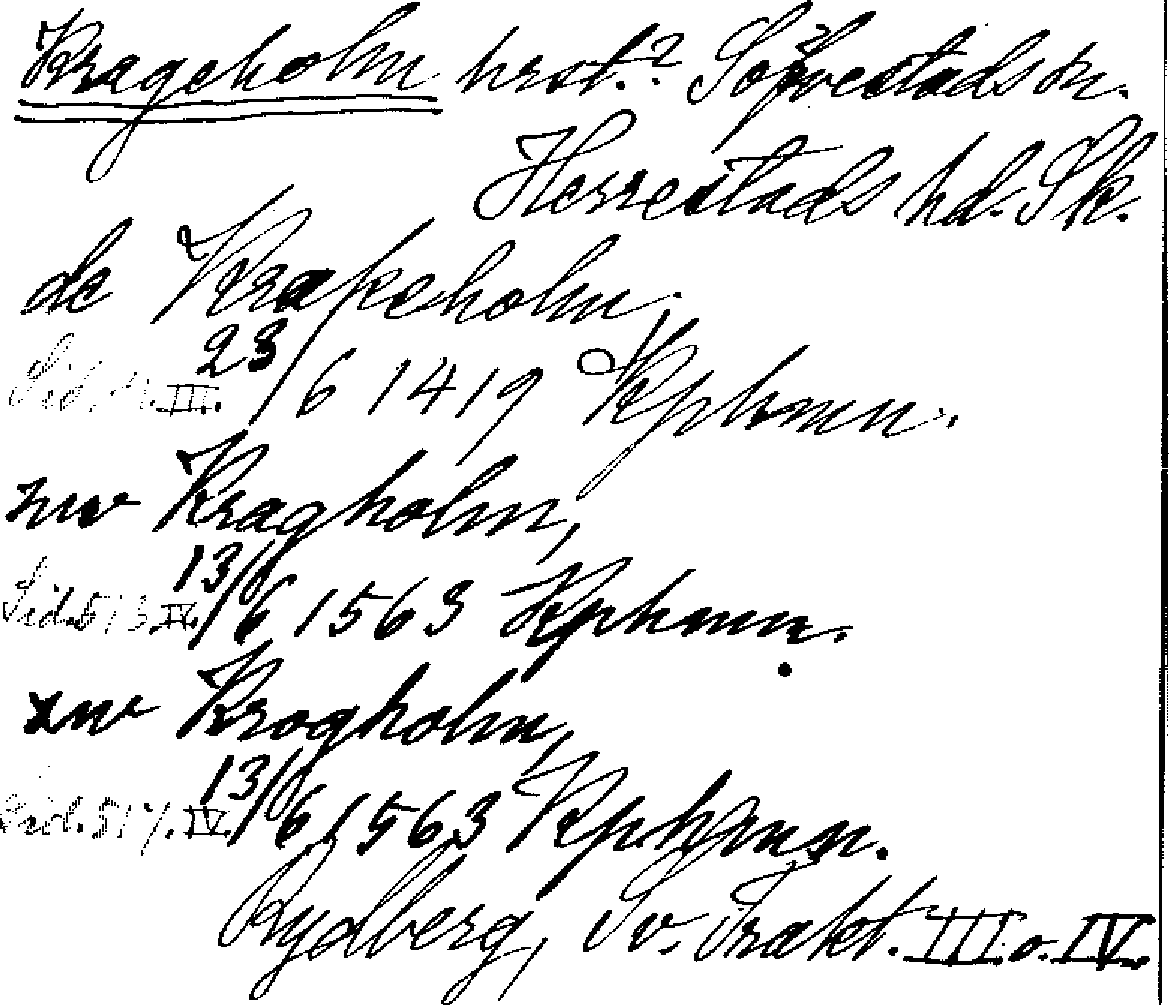 Krageholm hrst.? Sövestads sn.
Herrestads hd. Sk.
de Krakeholm,
Sid. III. 23/6 1419 Kphmn.
zuv Kragholm,
Sid. 513 IV. 13/6 1563 Kphmn.
zuv Krogholm,
Sid. 517. IV. 13/6 1563 Kphmn.
Rydberg, Sv. Trakt. III. o. IV.